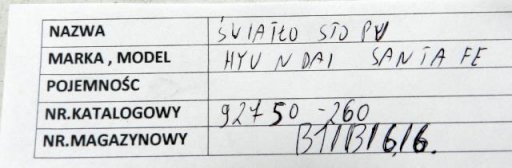 NAZWA ŚWIATŁO STOPU
MARKA , MODEL HYUNDAI SANTA FE
POJEMNOŚC
NR.KATALOGOWY 92750-260
NR.MAGAZYNOWY B1/B/6/6.